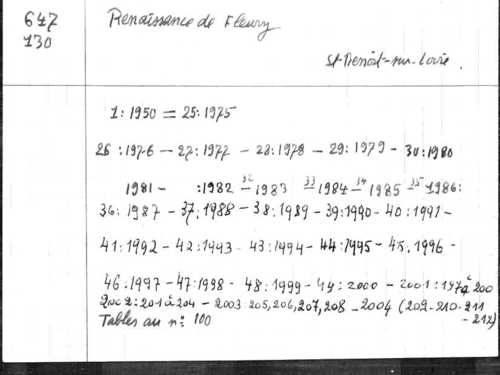 647
130
Renaissance de Fleury
St-Benoît-sur-Loire.
1: 1950 = 25: 1975
26 :1976 - 27:1977 - 28:1978 - 29: 1979 - 30:1980
1981 - :1982 - 32 1983 33 1984 - 34 1985 35 1986:
36: 1987 - 37:1988 - 38:1989 - 39:1990 - 40:1991 -
41:1992 - 42:1993 - 43:1994 - 44:1995 - 45.1996 -
46:1997 - 47:1998 - 48:1999 - 49:2000 - 2001:197 à 200
2002:201 à 204 - 2003:205,206,207,208 - 2004 (209-210-211
- 212)
Tables au n°: 100